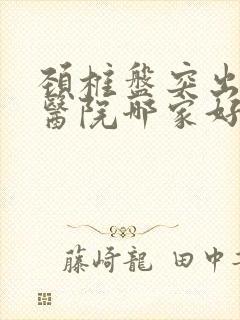 頚柱盤突出
醫院哪家好
藤崎龍 田中